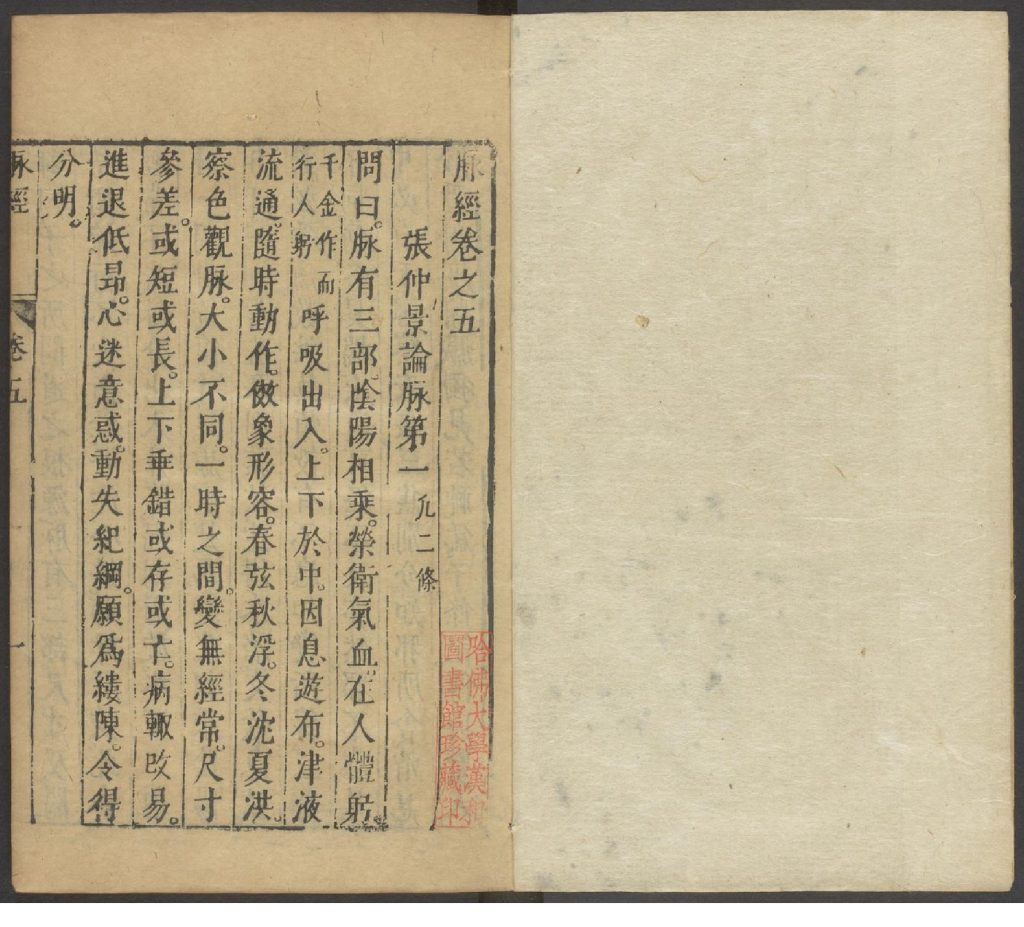 脉經卷之五
張仲景論脉第一 凡二條
問曰。脉有三部。陰陽相乘。榮衛氣血。在人體躬。
千金作而行人躬 呼吸出入。上下於中。因息遊布。津液
流通。隨時動作。傚象形容。春弦秋浮。冬沈夏洪。
察色觀脉。大小不同。一時之間。變無經常。尺寸
參差。或短或長。上下乖錯。或存或亡。病輙改易。
進退低昂。心迷意惑。動失紀綱。願爲縷陳。令得
分明。
脉經
卷五
一
哈佛大學漢和
圖書館珍藏印